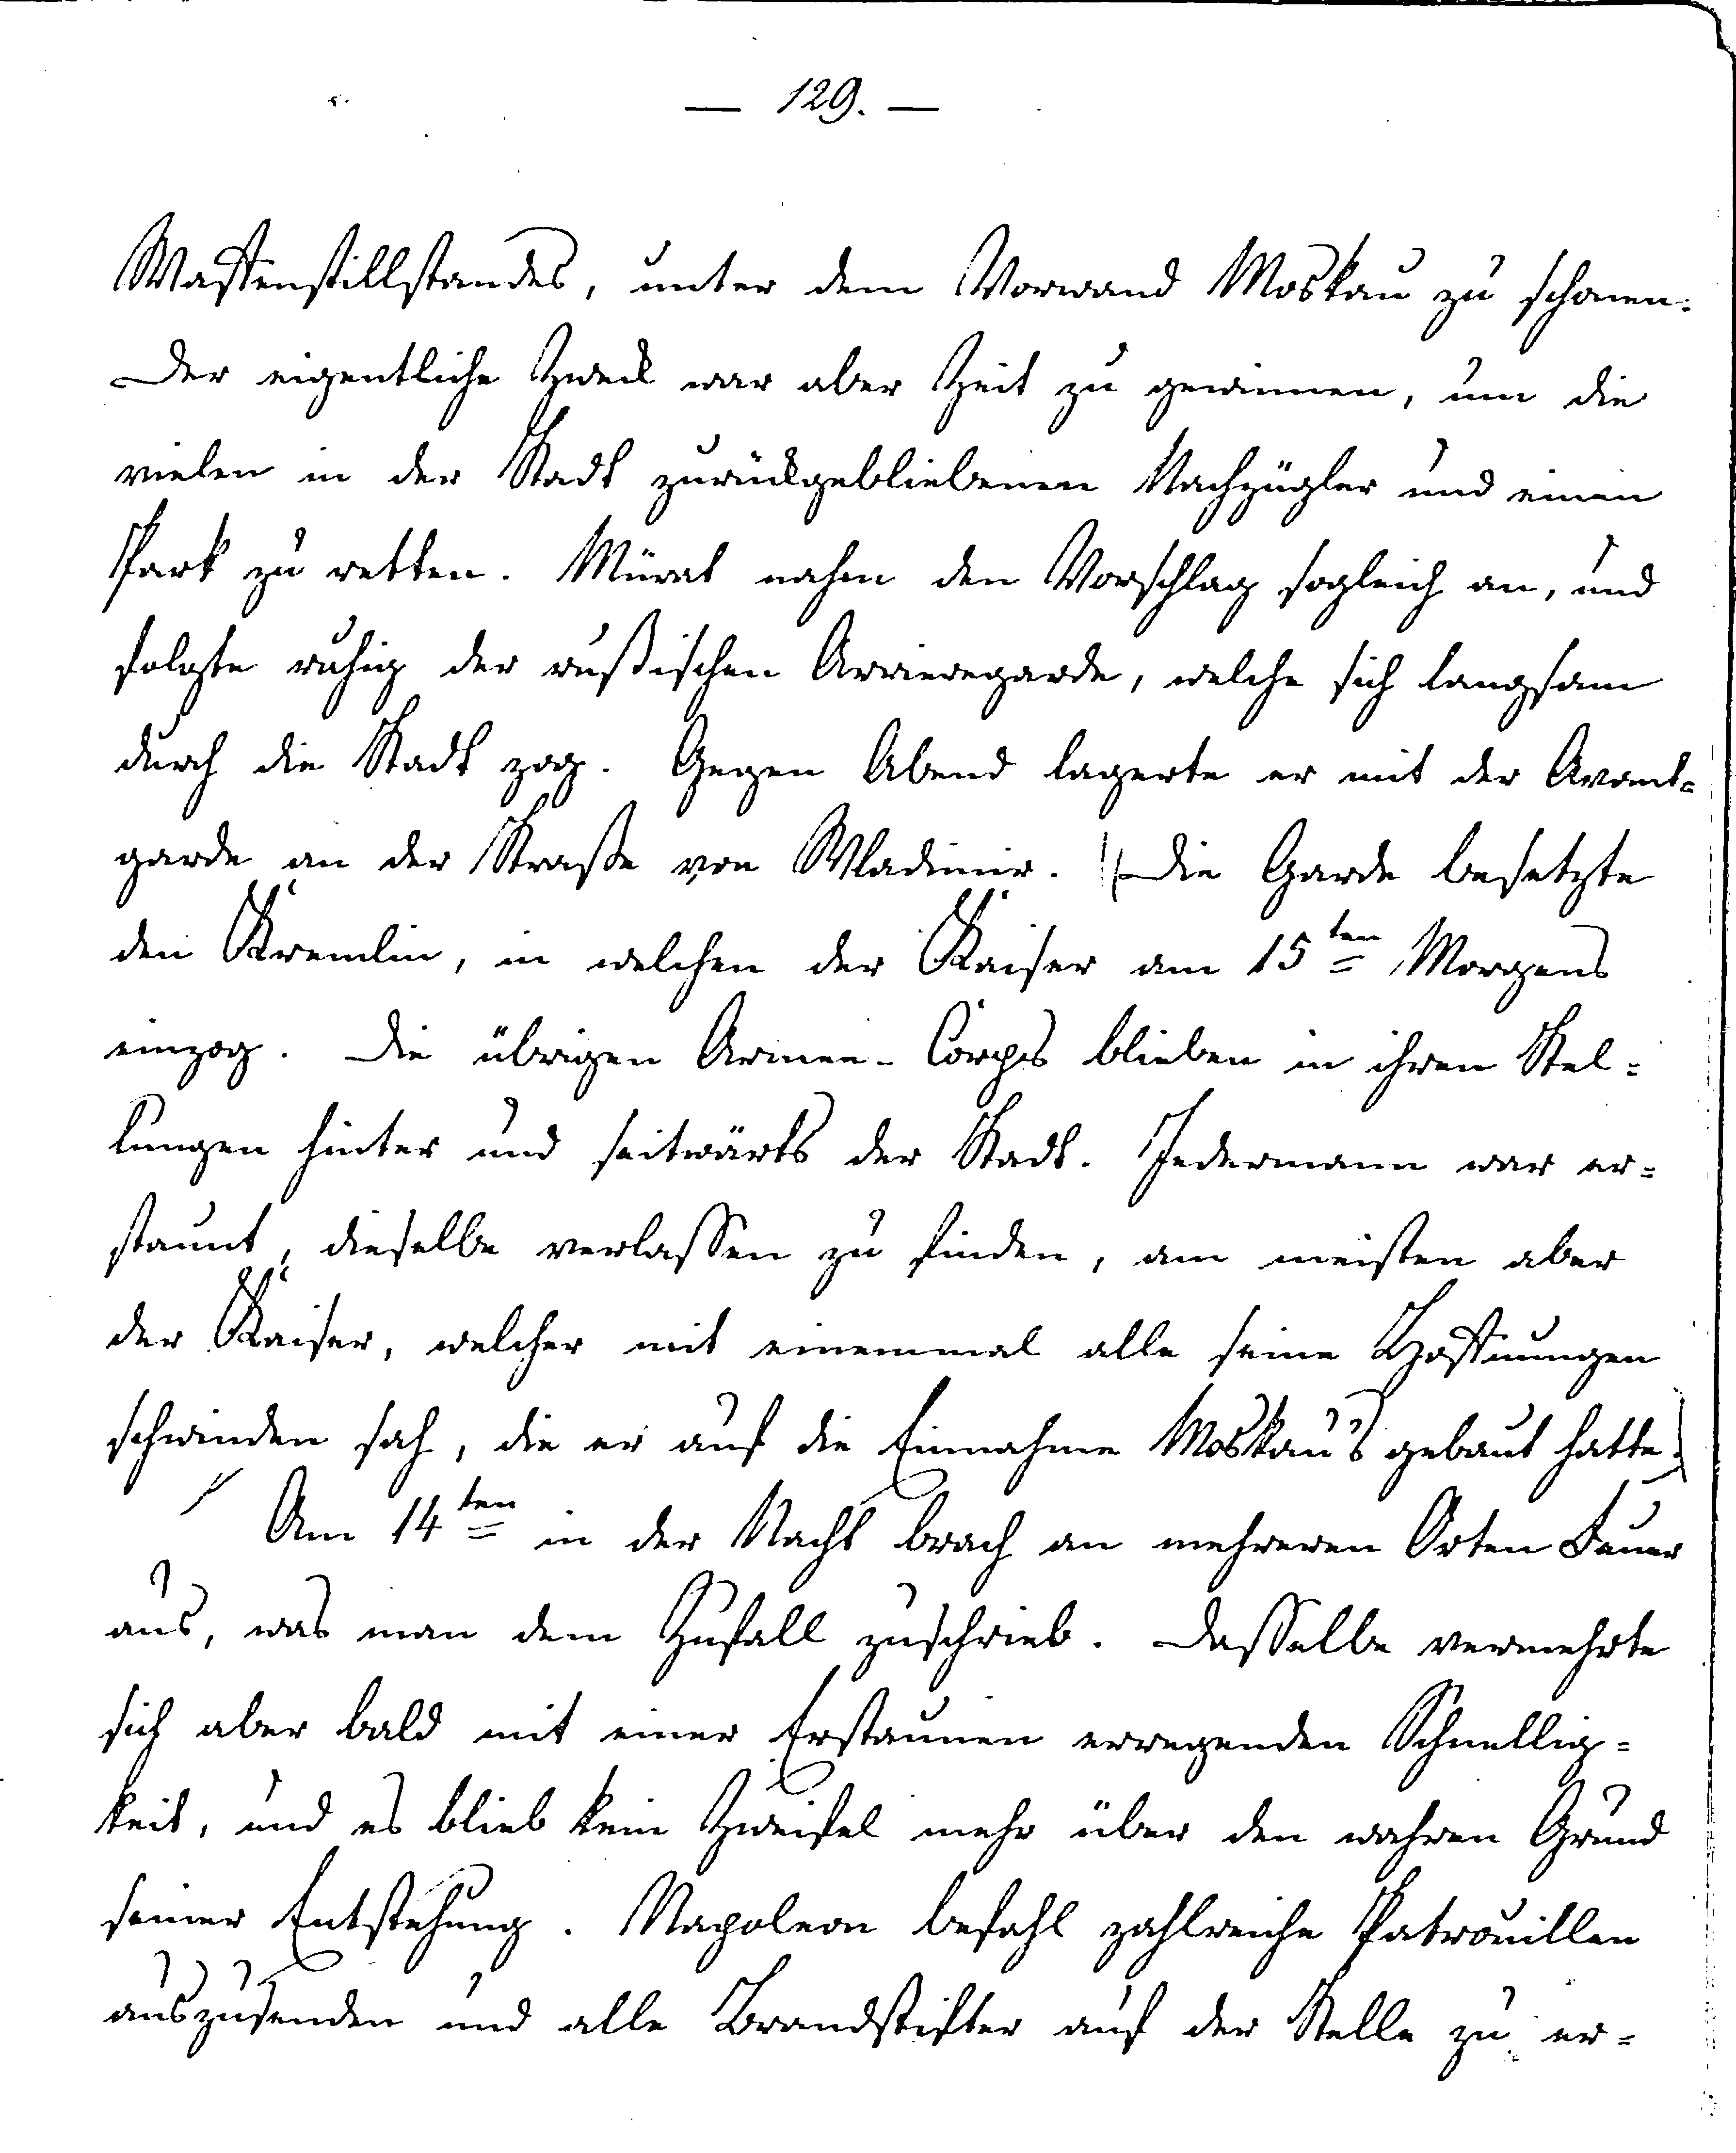 — 129. —
Waffenstillstandes, unter dem Vorwand Moskau zu schonen.
Der eigentliche Zweck war aber Zeit zu gewinnen, um die
vielen in der Stadt zurückgebliebenen Nachzügler und einen
Park zu retten. Mürat nahm den Vorschlag sogleich an, und
folgte ruhig der rußischen Arrieregarde, welche sich langsam
durch die Stadt zog. Gegen Abend lagerte er mit der Avant-
garde an der Straße von Wladimir. Die Garde besetzte
den Kremlin, in welchen der Kaiser am 15ten Morgens
einzog. Die übrigen Armee-Corps blieben in ihren Stel-
lungen hinter und seitwärts der Stadt. Jedermann war er-
staunt, dieselbe verlassen zu finden, am meisten aber
der Kaiser, welcher mit einemmal alle seine Hoffnungen
schwinden sah, die er auf die Einnahme Moskau's gebaut hatte.
Am 14ten in der Nacht brach an mehreren Orten Feuer
aus, was man dem Zufall zuschrieb. Dasselbe vermehrte
sich aber bald mit einer Erstaunen erregenden Schnellig-
keit, und es blieb kein Zweifel mehr über den wahren Grund
seiner Entstehung. Napoleon befahl zahlreiche Patrouillen
auszusenden und alle Brandstifter auf der Stelle zu er-